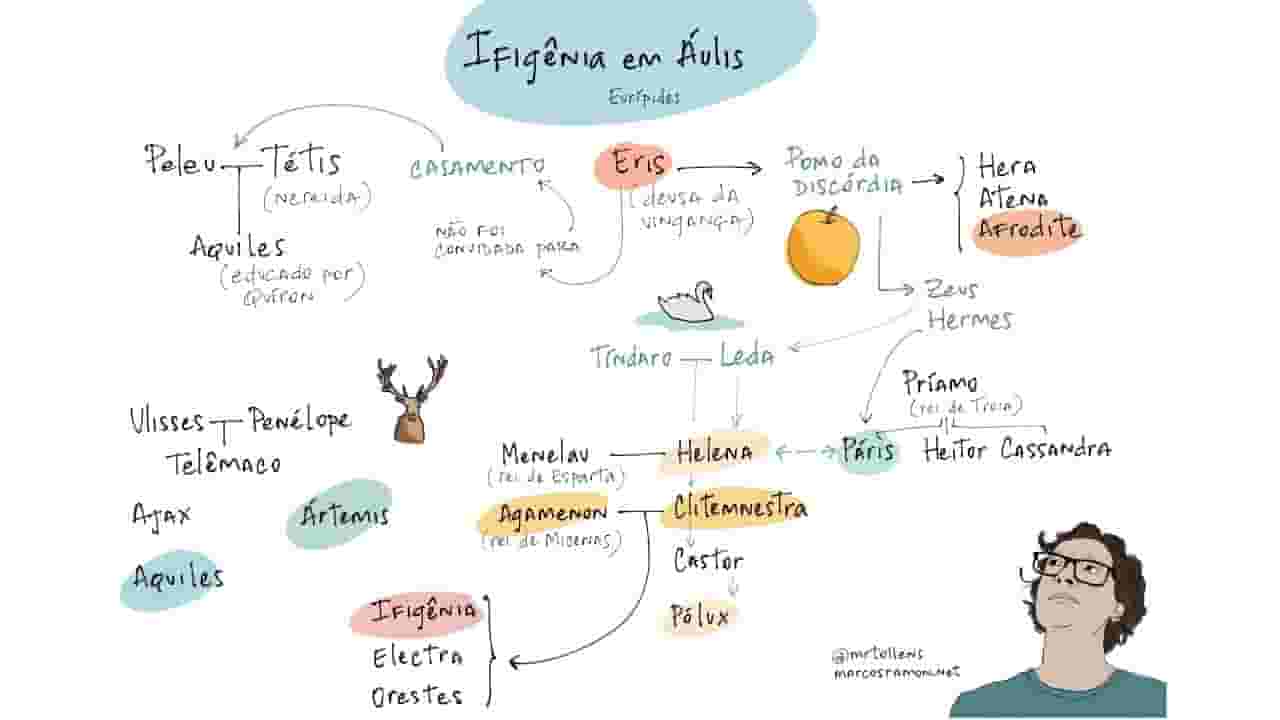 Ifigênia em Áulis
Eurípides
Peleu
Tétis
(nereida)
Aquiles
(educado por
Quíron)
Casamento
Não foi
convidada para
Eris
(deusa da
vingança)
Pomo da
Discórdia
Hera
Atena
Afrodite
Zeus
Hermes
Tíndaro
Leda
Príamo
(rei de Troia)
Ulisses
Penélope
Telêmaco
Menelau
(rei de Esparta)
Helena
Páris
Heitor
Cassandra
Ajax
Ártemis
Agamenon
(rei de Micenas)
Clitemnestra
Castor
Pólux
Aquiles
Ifigênia
Electra
Orestes
@mrtollens
marcosramon.net